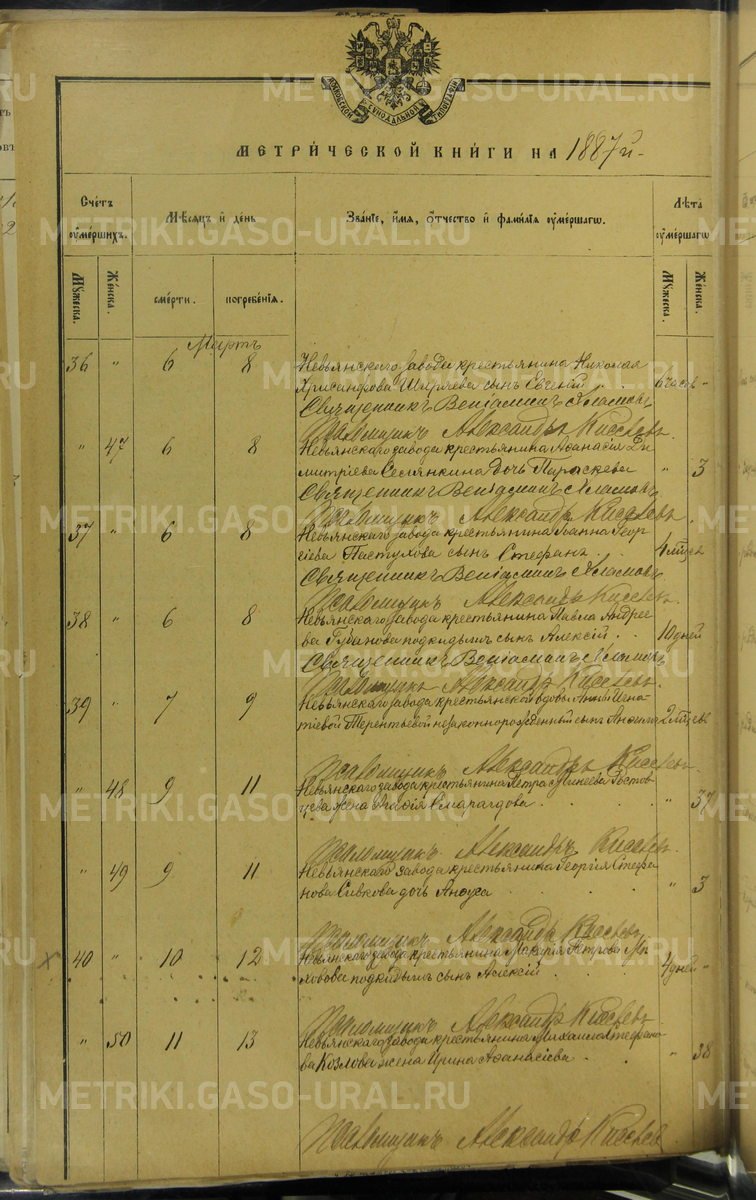 МЕТРИЧЕСКОЙ КНИГИ НА 1887й
Счетъ умершихъ.
Мѣсяцъ и день
Званіе, имя, отчество и фамилія умершаго.
Лѣта умершаго
Мужеска.
Женска.
смерти.
погребенія.
Мужеска.
Женска.
Мартъ
36 " 6 8 Невьянскаго завода крестьянина Николая
Хрисанфова Ширяева сынъ Евгеній . . 6 часов "
Священникъ Веніаминъ
Псаломщикъ Александръ Киселевъ
" 47 6 8 Невьянскаго завода крестьянина Аѳанасія Ди
митріева Селянкина дочь Параскева " 3
Священникъ Веніаминъ
Псаломщикъ Александръ Киселевъ
37 " 6 8 Невьянскаго завода крестьянина Іоанна Геор
гіева Пастухова сынъ Стефанъ . . 4 мѣсяц
Священникъ Веніаминъ
Псаломщикъ Александръ Киселевъ
38 " 6 8 Невьянскаго завода крестьянина Павла Андрее
ва Губанова подкидышъ сынъ Алексій . . 10 дней
Священникъ Веніаминъ
Псаломщикъ Александръ Киселевъ
39 " 7 9 Невьянскаго завода крестьянской вдовы Анны Игна
тіевой Терентьевой незаконнорожденный сынъ 2 мѣсяц
Псаломщикъ Александръ Киселевъ
" 48 9 11 Невьянскаго завода крестьянина Петра Минеева Ростов
цева жена Смарагдова . . " 37
Псаломщикъ Александръ Киселевъ
" 49 9 11 Невьянскаго завода крестьянина Георгія Стефа
нова Сивкова дочь Анфуса . . . . " 3
Псаломщикъ Александръ Киселевъ
40 " 10 12 Невьянскаго завода крестьянина Макарія Петрова
подкидышъ сынъ Алексій . . 4 дней "
Псаломщикъ Александръ Киселевъ
" 50 11 13 Невьянскаго завода крестьянина Михаила Стефано
ва Козлова жена Ирина Аѳанасіева . . " 38
Псаломщикъ Александръ Киселевъ
METRIKI.GASO-URAL.RU